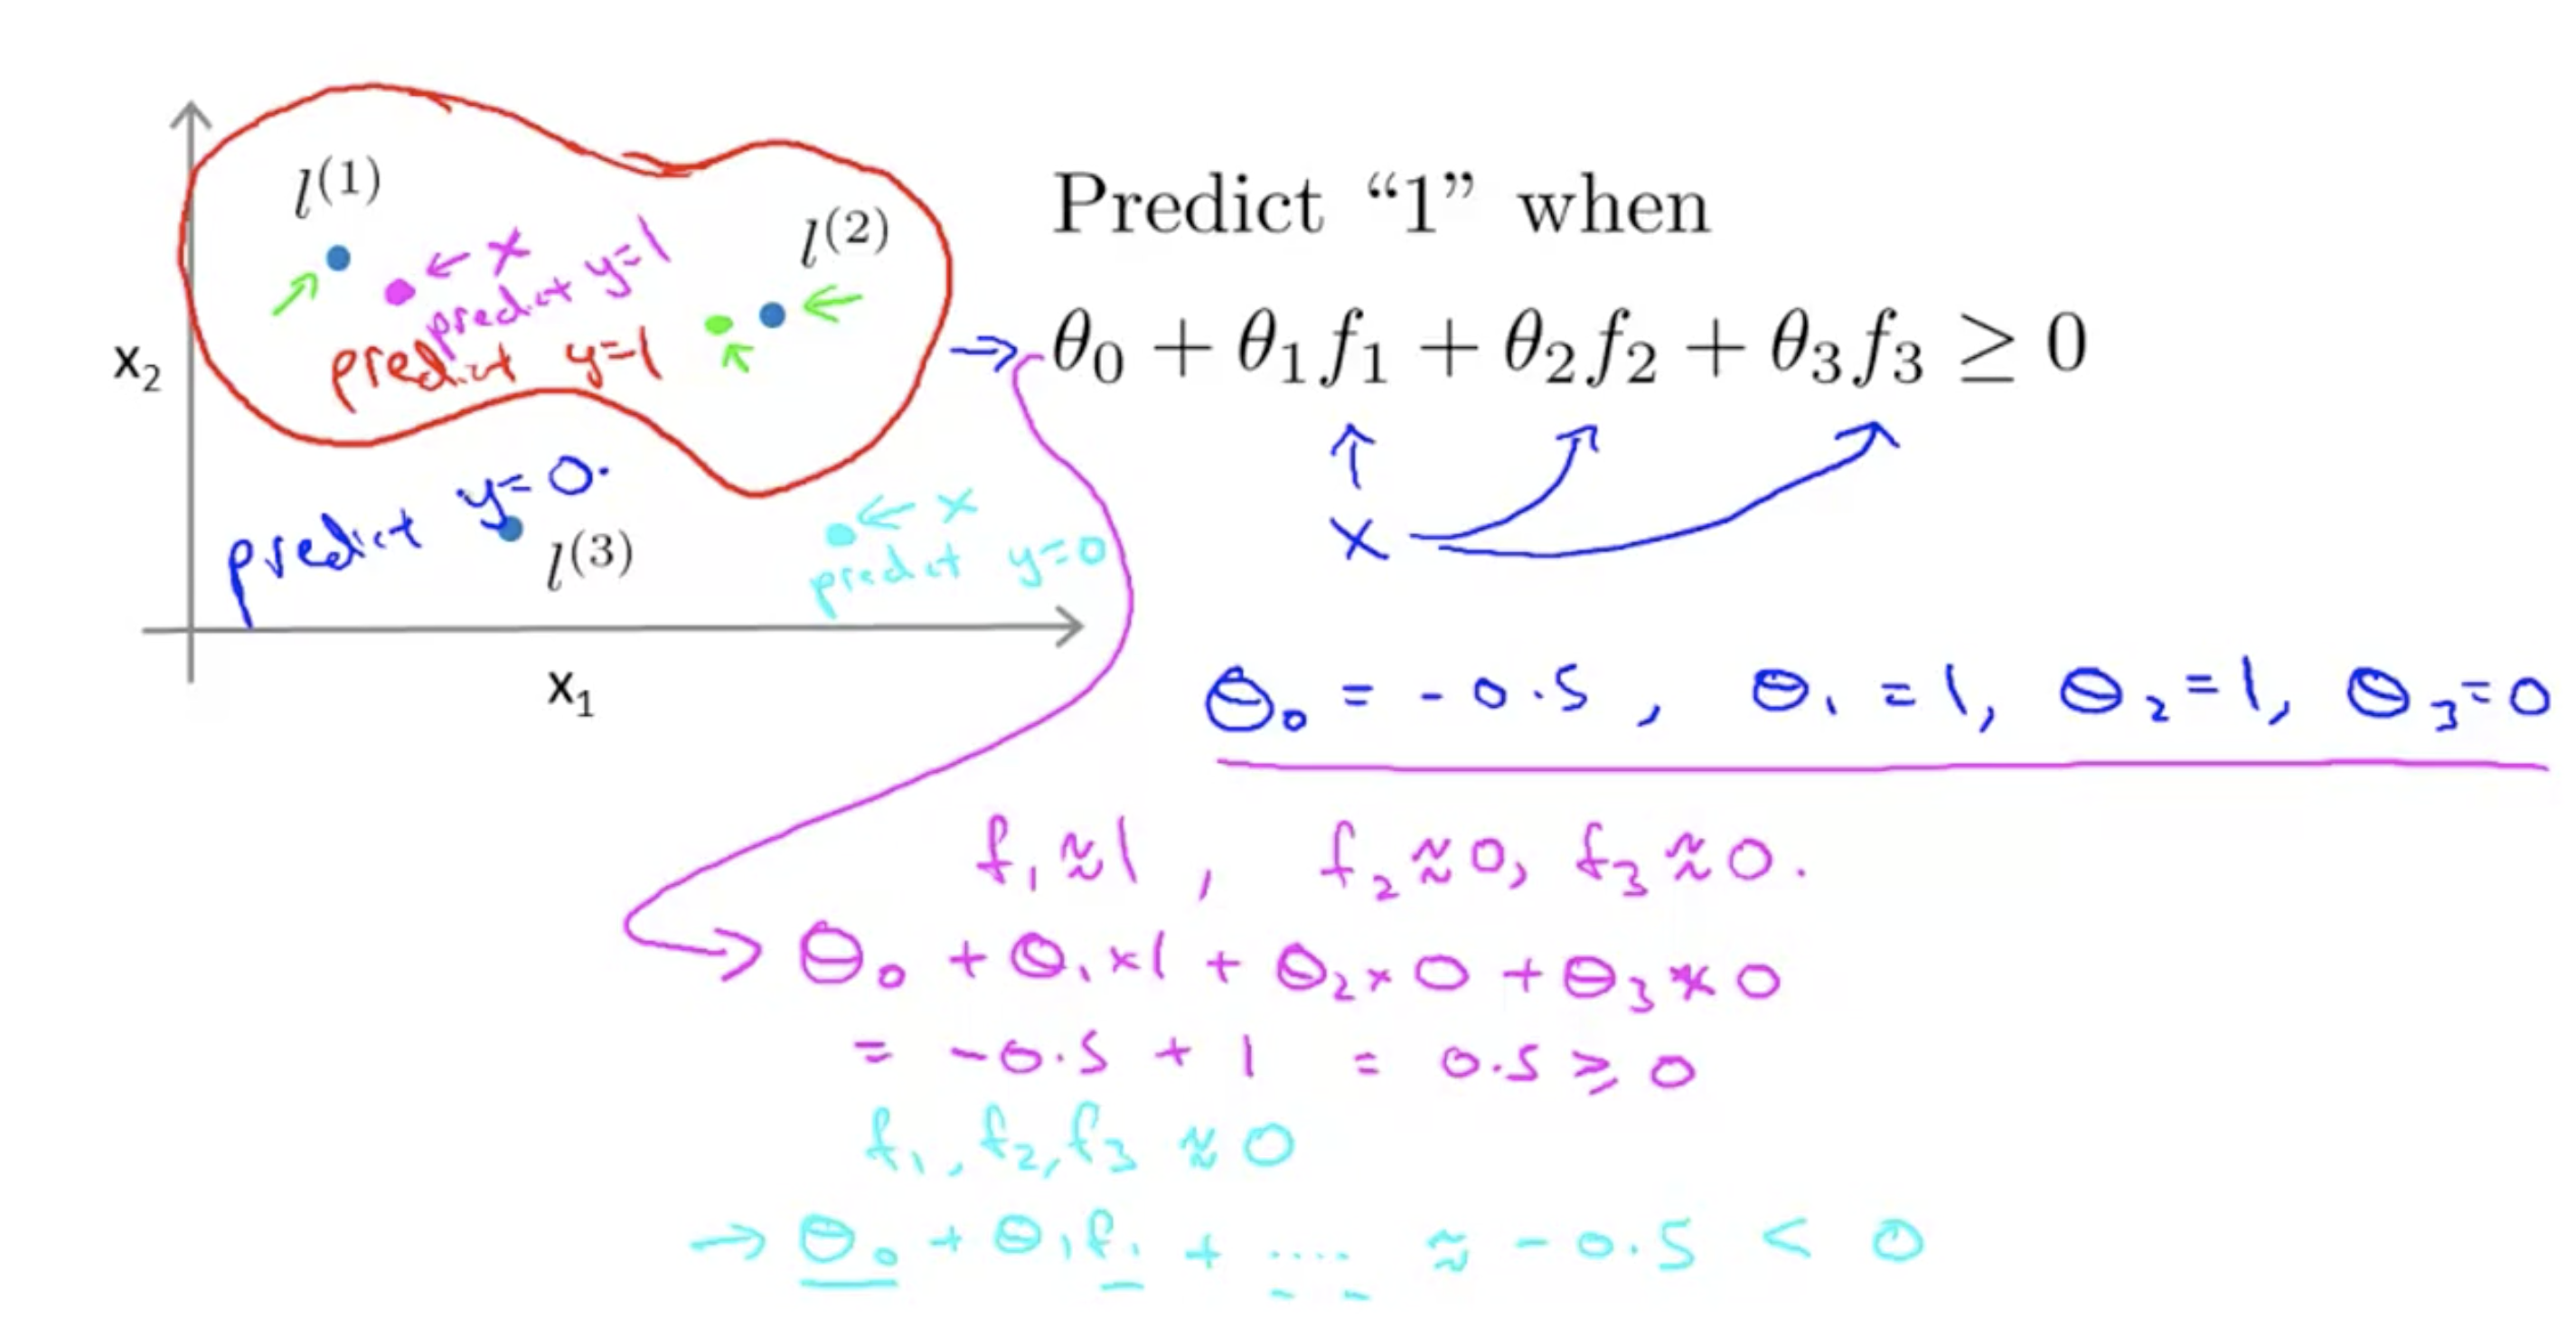 l^{(1)}
l^{(2)}
← x
predict y=1
predict y=1
x₂
predict y=0.
l^{(3)}
← x
predict y=0
x₁
Predict “1” when
→ θ₀ + θ₁f₁ + θ₂f₂ + θ₃f₃ ≥ 0
x
θ₀ = -0.5, θ₁ = 1, θ₂ = 1, θ₃ = 0
f₁ ≈ 1, f₂ ≈ 0, f₃ ≈ 0.
→ θ₀ + θ₁×1 + θ₂×0 + θ₃×0
= -0.5 + 1 = 0.5 ≥ 0
f₁, f₂, f₃ ≈ 0
→ θ₀ + θ₁f₁ + .... ≈ -0.5 < 0